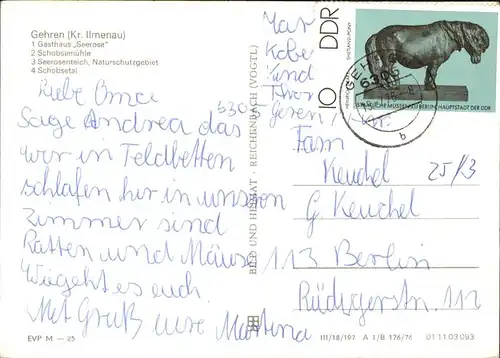 Gehren (Kr. Ilmenau)
1 Gasthaus „Seerose"
2 Schobsemühle
3 Seerosenteich, Naturschutzgebiet
4 Schobsetal
Liebe Oma
Sage Andrea das
wir in Feldbetten
schlafen hir in unson
Zimmer sind
Ratten und Mäuse
Wie geht es euch.
Met Gruß eure Martina
EVP M — 25
BILD UND HEIMAT · REICHENBACH (VOGTL)
530
Gehren
DDR
10
SHETLAND-PONY
STAATLICHE MUSEEN ZU BERLIN, HAUPTSTADT DER DDR
GEHREN
6306
b
Fam
Keuchel
25/3
G. Keuchel
113 Berlin
Rüdigerstr. 112
III/18/197 A 1/B 176/76 01 11 03 093